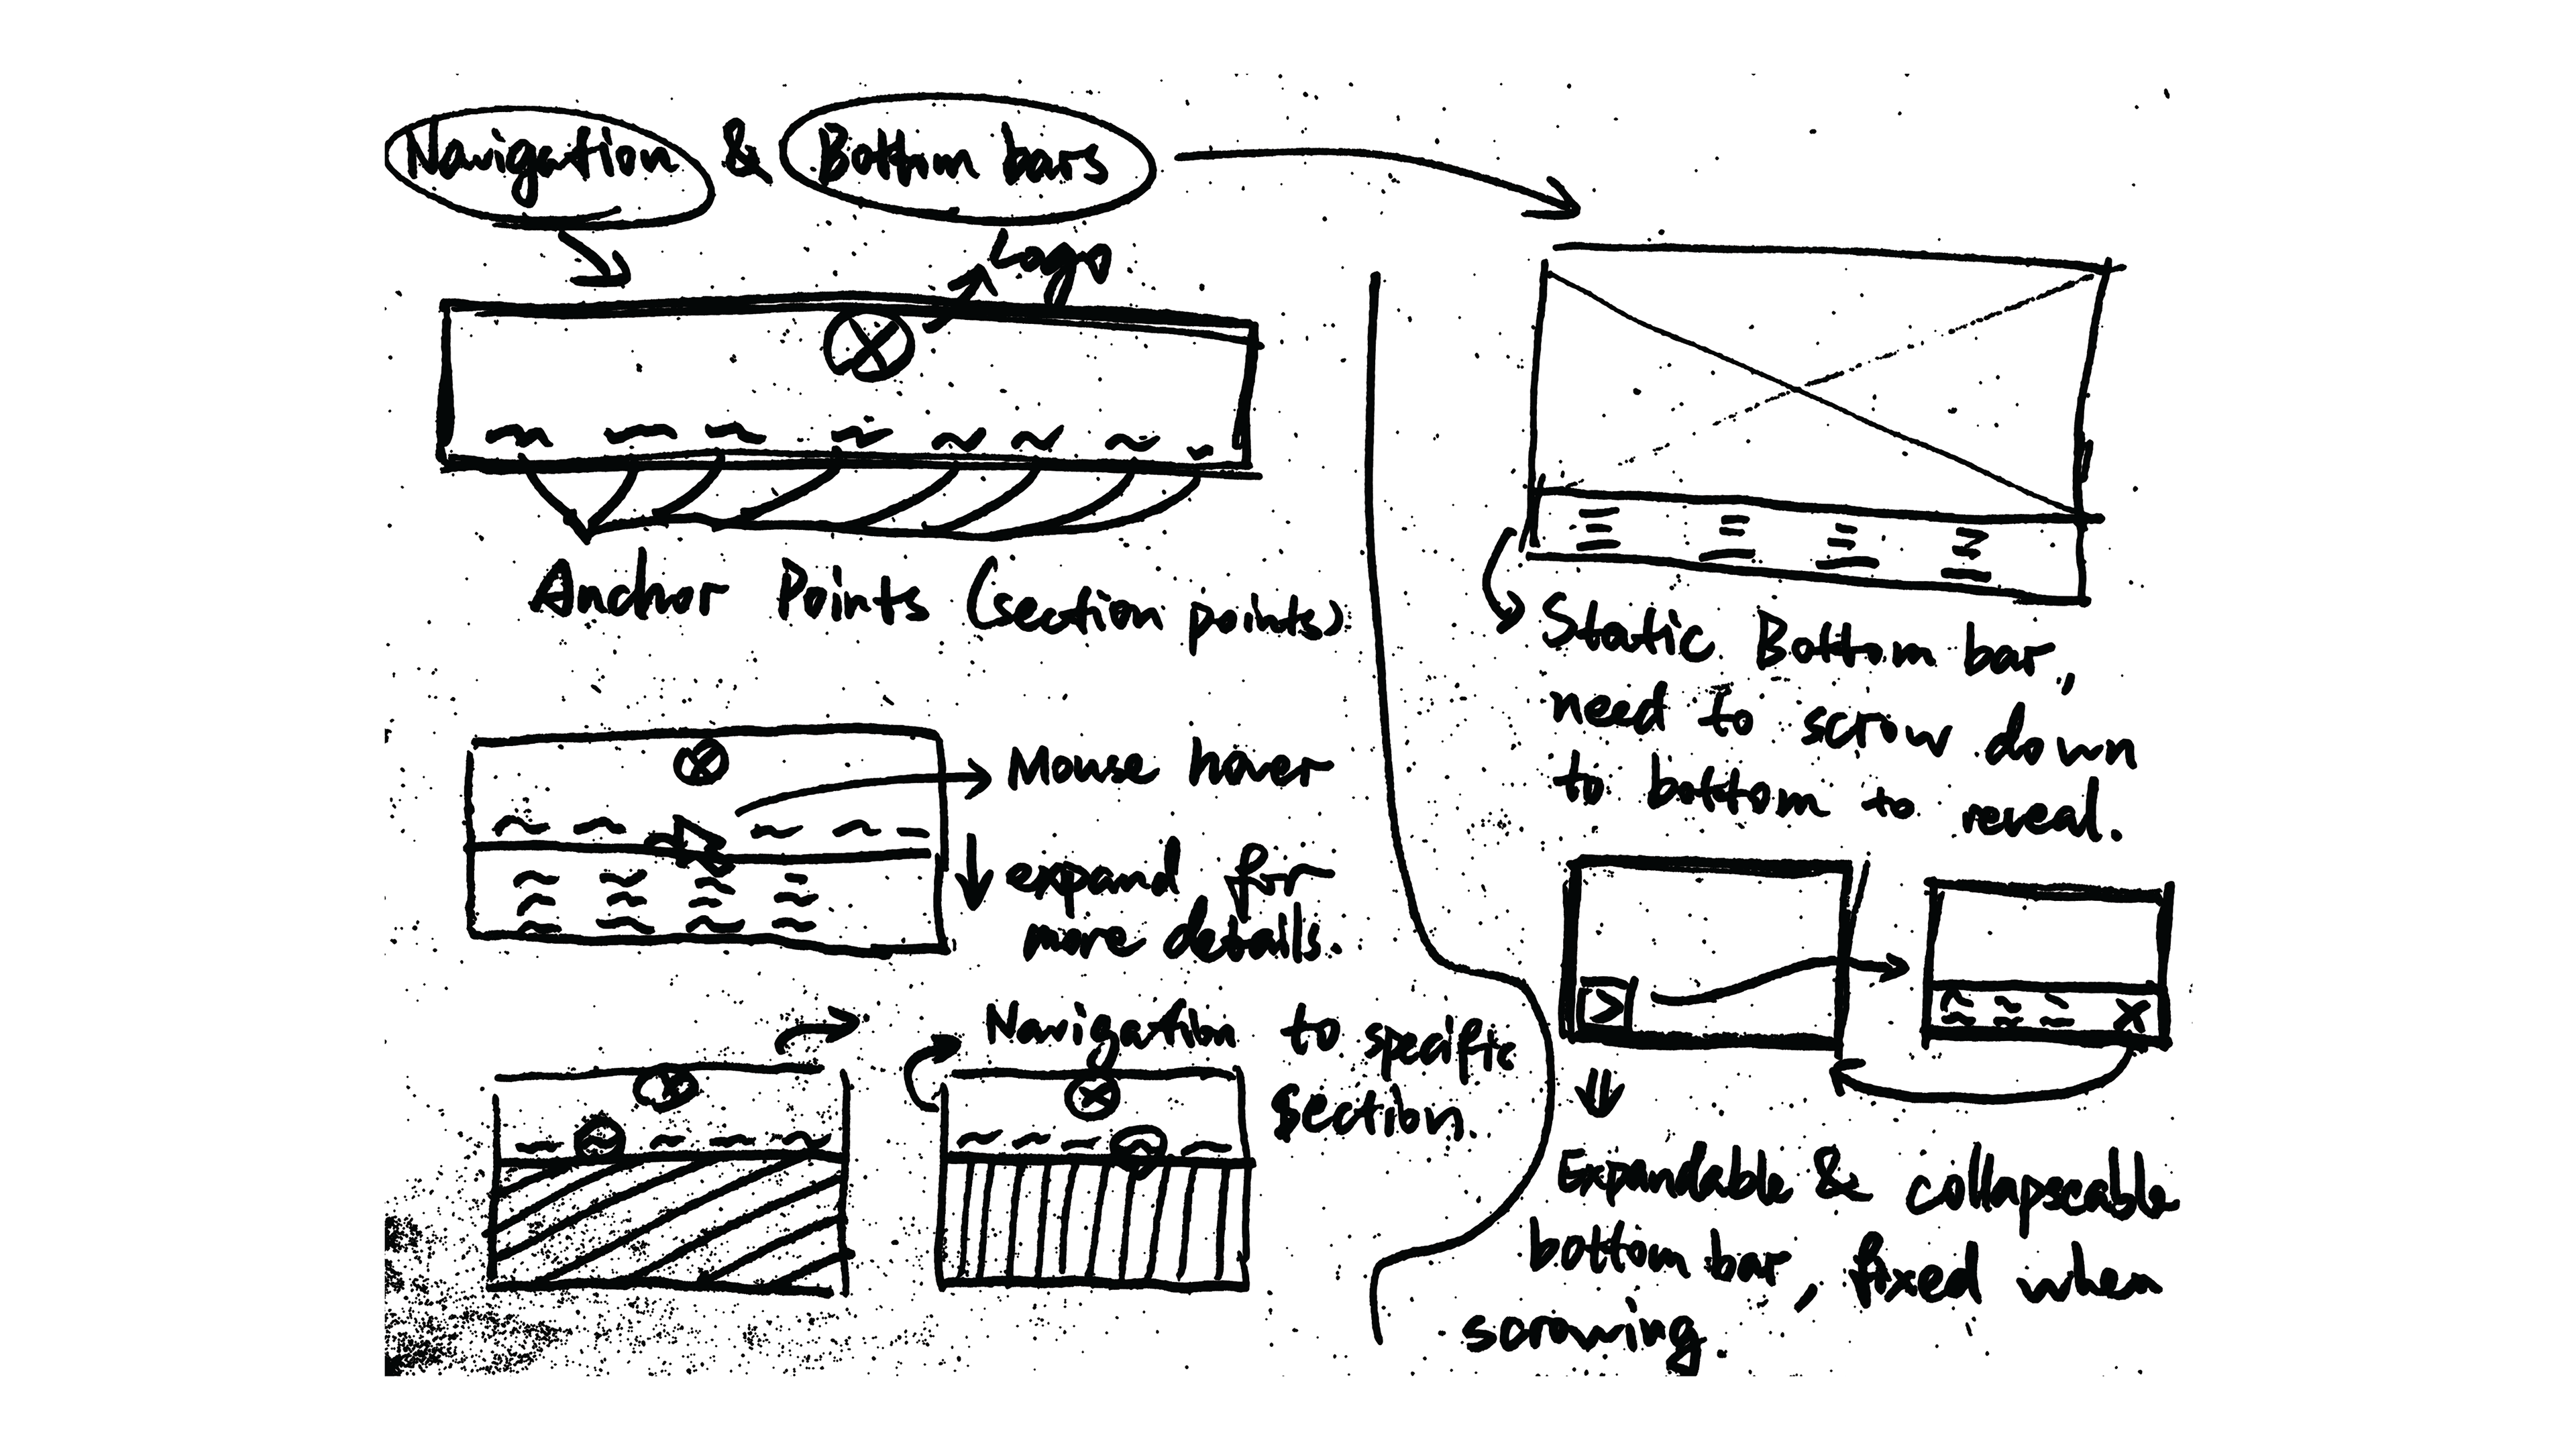 Navigation & Bottom bars
Logo
Anchor Points (section points)
Mouse hover
expand for
more details.
Navigation to specific
section.
Static Bottom bar,
need to scrow down
to bottom to reveal.
Expandable & collapseable
bottom bar, fixed when
scrowing.